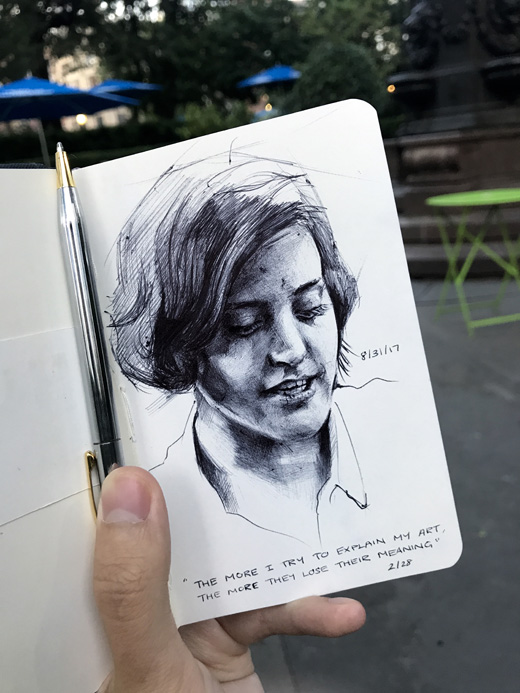 8/31/17
" THE MORE I TRY TO EXPLAIN MY ART,
THE MORE THEY LOSE THEIR MEANING"
2/28